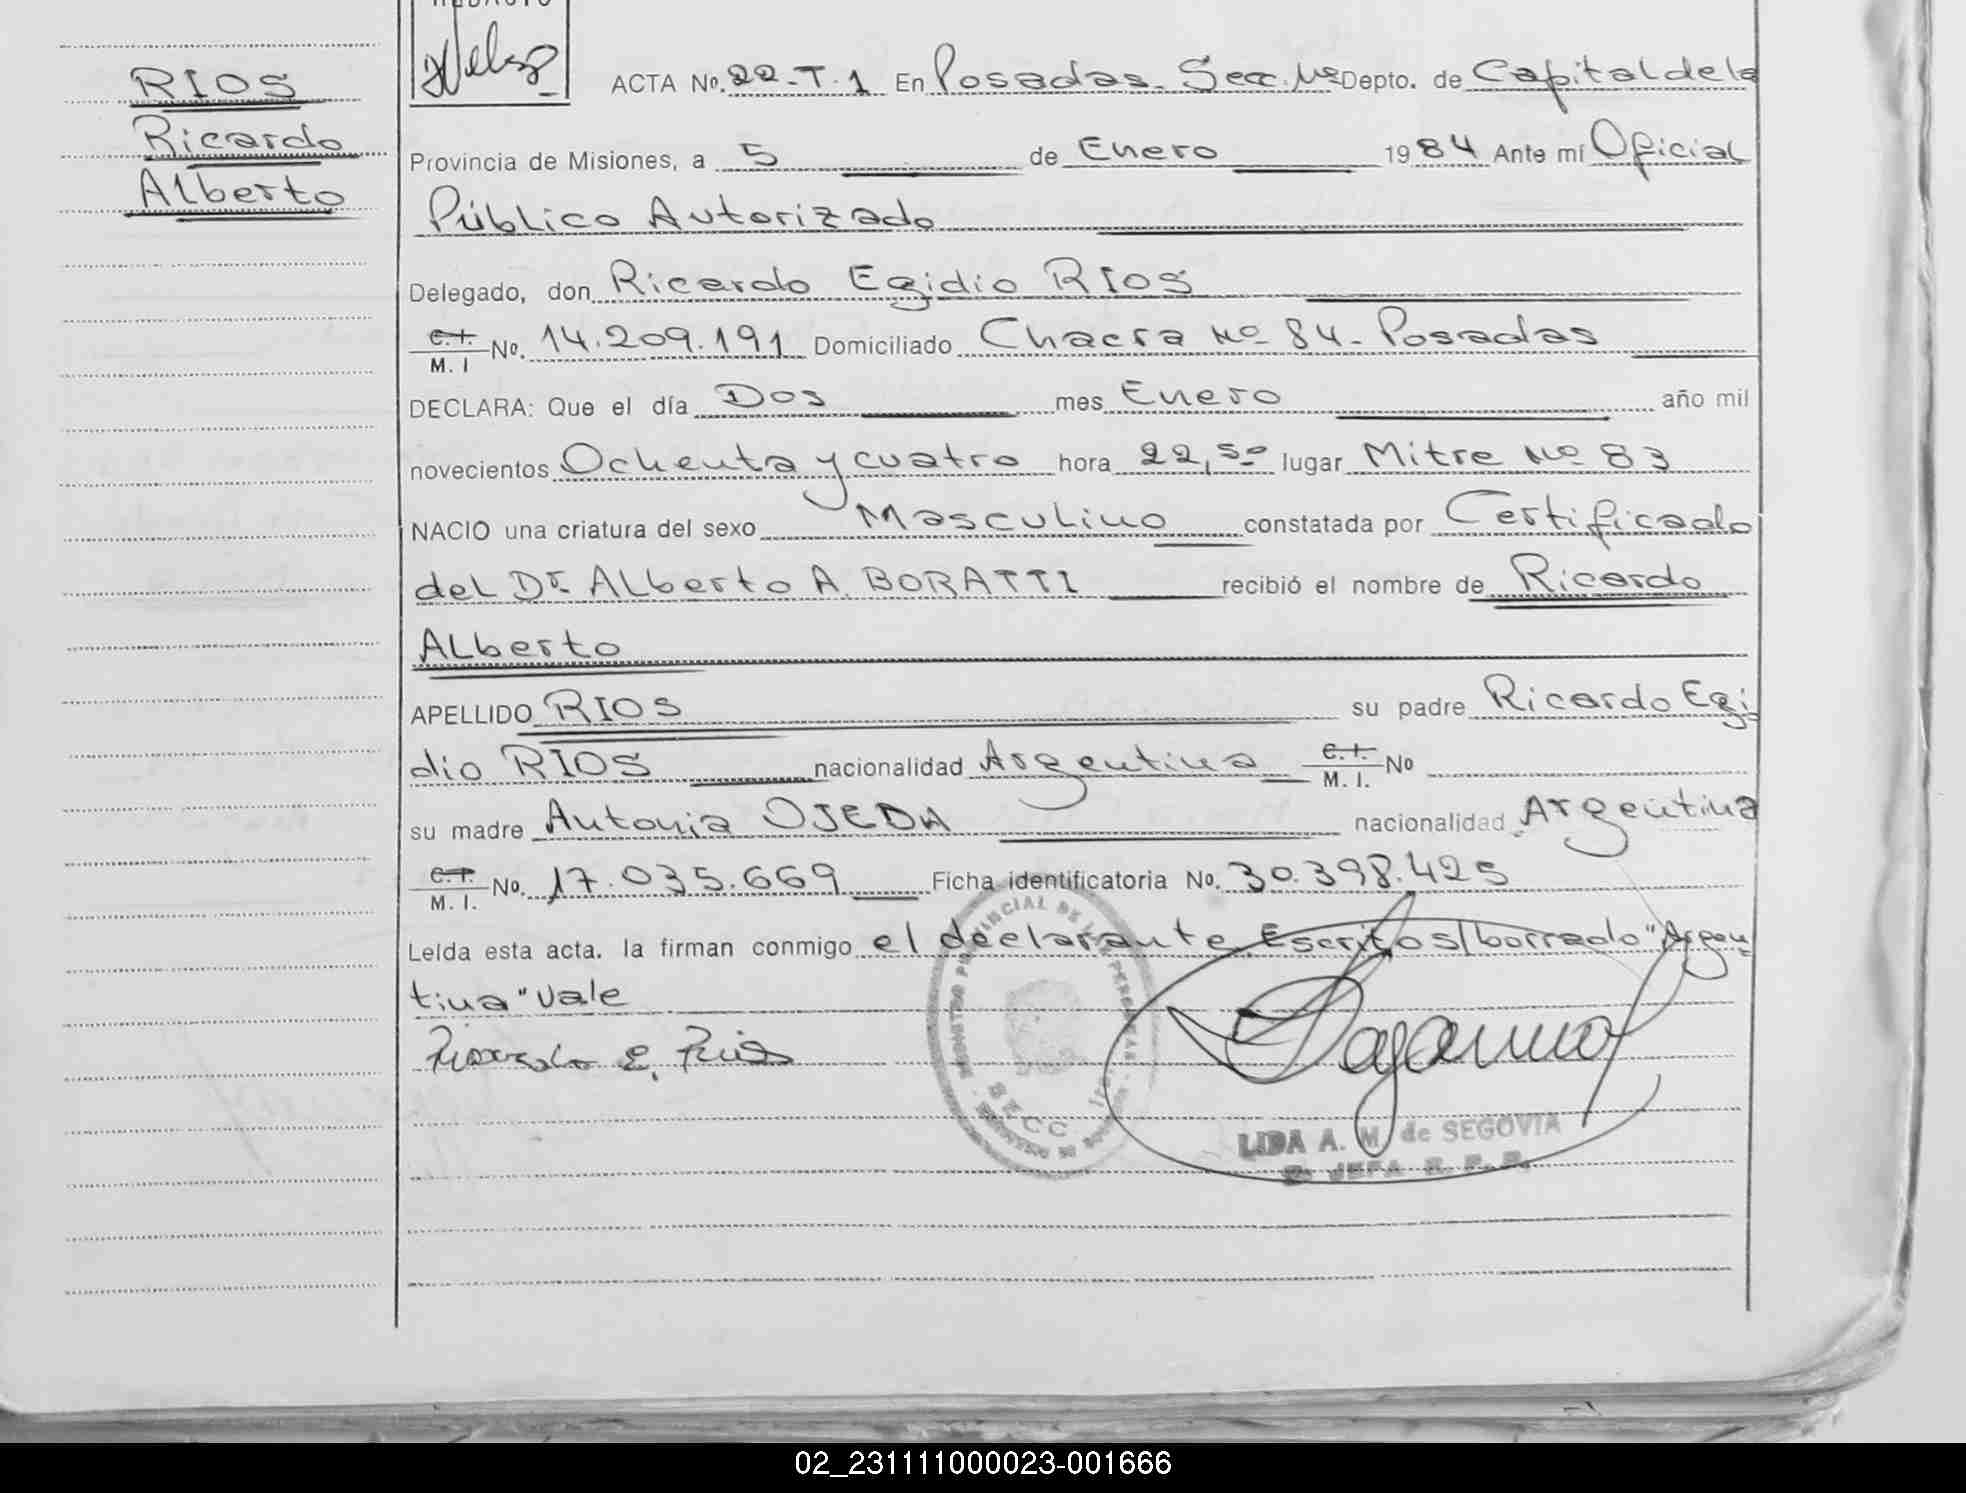 RIOS
Ricardo
Alberto
REDACTO
ACTA No. 22-T.1 En Posadas. Secc. 1ra Depto. de Capital de la
Provincia de Misiones, a 5 de Enero 1984 Ante mí Oficial
Público Autorizado
Delegado, don Ricardo Egidio RIOS
C.I. M. I No. 14.209.191 Domiciliado Chacra Nº 84. Posadas
DECLARA: Que el día Dos mes Enero año mil
novecientos Ochenta y cuatro hora 22,50 lugar Mitre Nº 83
NACIO una criatura del sexo Masculino constatada por Certificado
del Dr. Alberto A. BORATTI recibió el nombre de Ricardo
Alberto
APELLIDO RIOS su padre Ricardo Egi-
dio RIOS nacionalidad Argentina C.I. M. I. No
su madre Antonia OJEDA nacionalidad Argentina
C.I. M. I. No. 17.035.669 Ficha identificatoria No. 30.398.425
Leída esta acta, la firman conmigo el declarante. Escritos/borrado "Argen-
tina" Vale
Ricardo E. Rios
REGISTRO PROVINCIAL DE LAS PERSONAS
SECC. 1ra
LIDA A. M. de SEGOVIA
2º JEFA R. P. P.
02_231111000023-001666